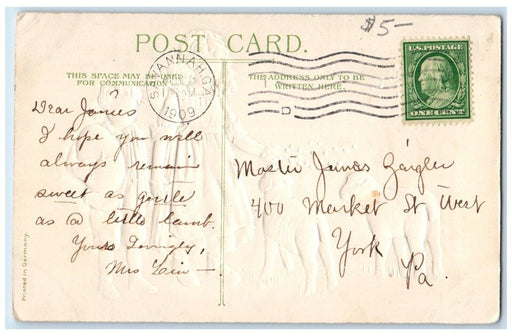 $5-
POST CARD.
THIS SPACE MAY BE USED
FOR COMMUNICATION
THE ADDRESS ONLY TO BE
WRITTEN HERE.
SAVANNAH, GA
1909
D
U.S. POSTAGE
ONE CENT
Dear James
I hope you will
always remain
sweet as gentle
as a little lamb.
Yours Lovingly,
Mrs
Master James Zeigler
400 Market St West
York
Pa.
Printed in Germany